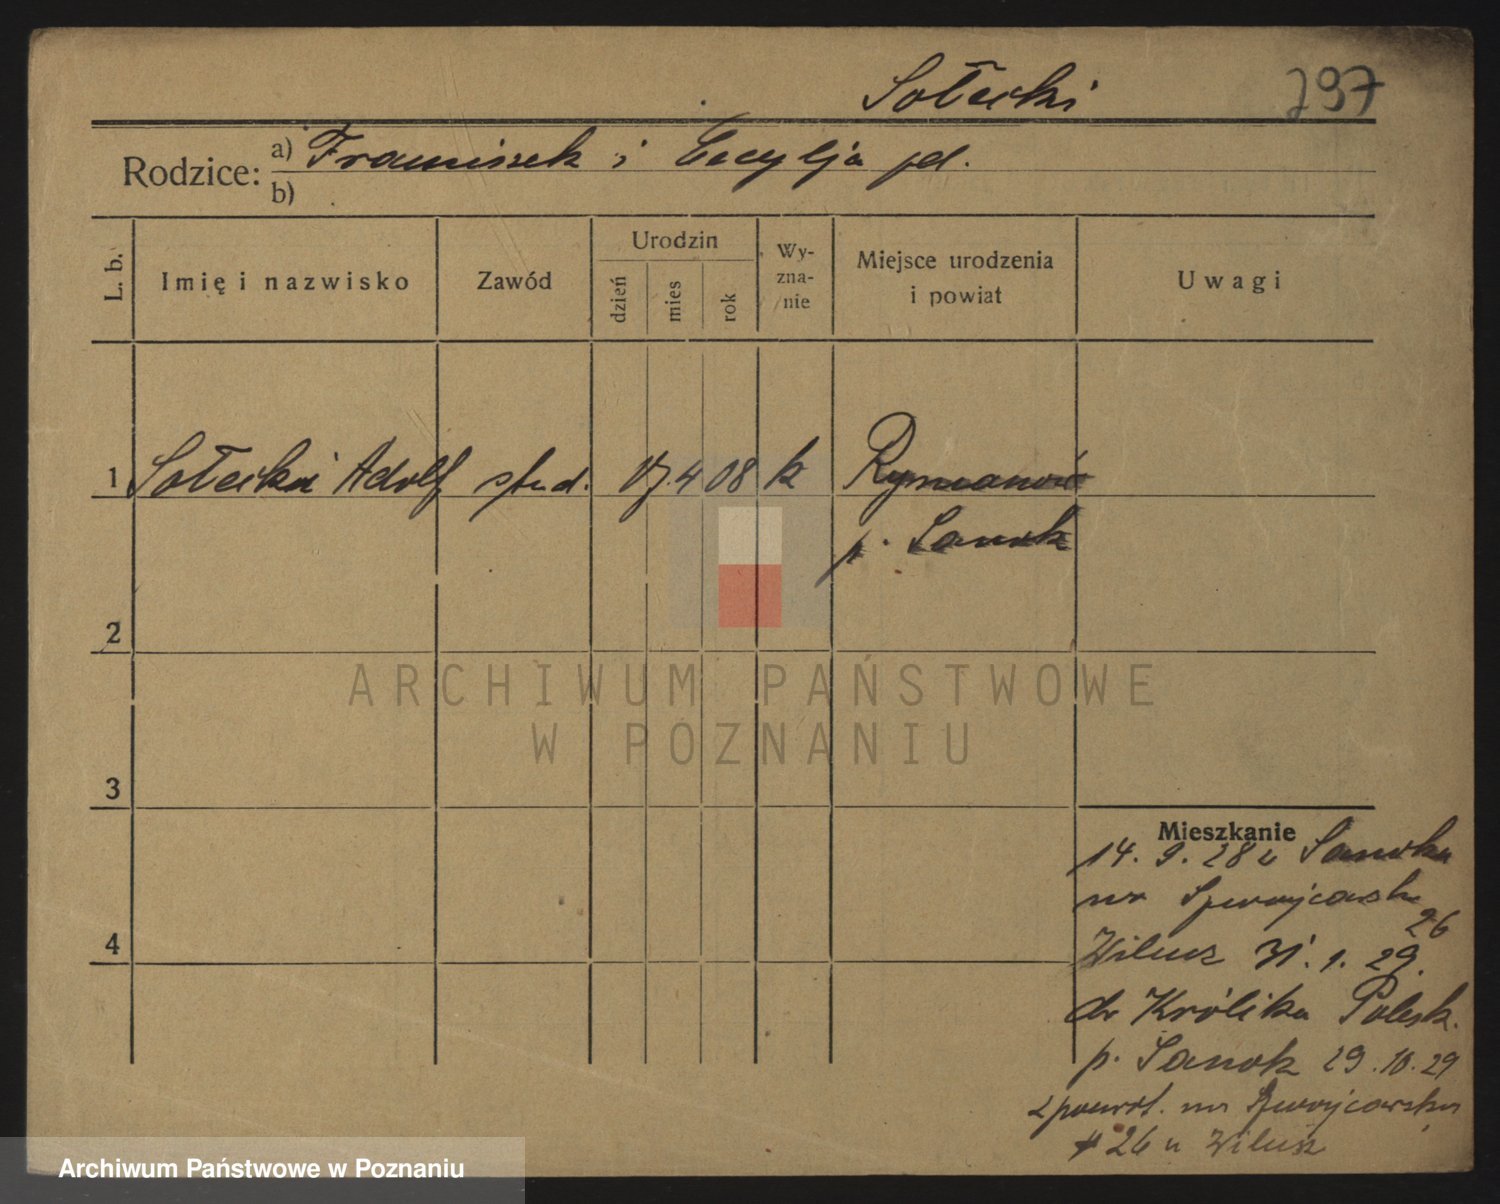 Sołecki 797
Rodzice: a) Franciszek i Cecylja jd.
b)
L. b.
Imię i nazwisko
Zawód
Urodzin
dzień
mies
rok
Wy-
zna-
nie
Miejsce urodzenia
i powiat
Uwagi
1 Sołecki Adolf stud. 17. 4 08 k Rymanów
p. Sanok
2
ARCHIWUM PAŃSTWOWE
W POZNANIU
3
4
Mieszkanie
14. 9. 28 z Sanoka
na Szwajcarsk
26
Wilusz 31. 1. 29.
do Królika Polsk.
p. Sanok 29. 10. 29
z powrot. na Szwajcarską
# 26 u Wilusz
Archiwum Państwowe w Poznaniu